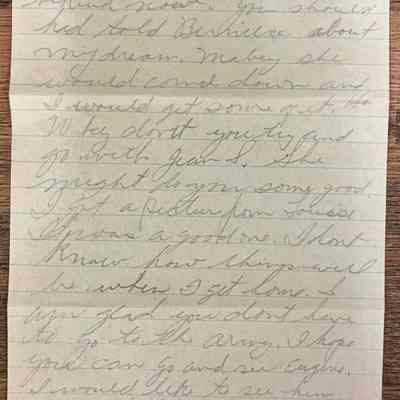 now. You should
had told Berniece about
my dream. Mabey she
would come down and
I would get some of it. Ha
Why don't you try and
go with Jean S. She
might do you some good.
I got a picture from Louise
It was a good one. I dont
know how things will
be when I get home. I
am glad you dont have
to go to the army. I hope
you can go and see Eugene.
I would like to see him